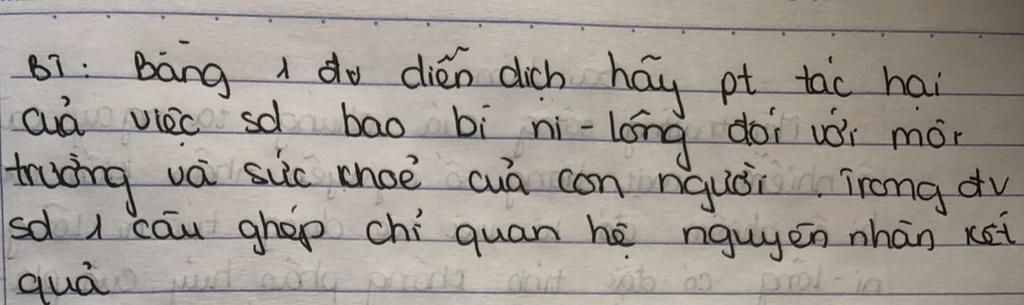 BT: Bằng 1 đv diễn dịch hãy pt tác hại
của việc sd bao bì ni-lông đối với môi
trường và sức khoẻ của con người. Trong đv
sd 1 câu ghép chỉ quan hệ nguyên nhân kết
quả